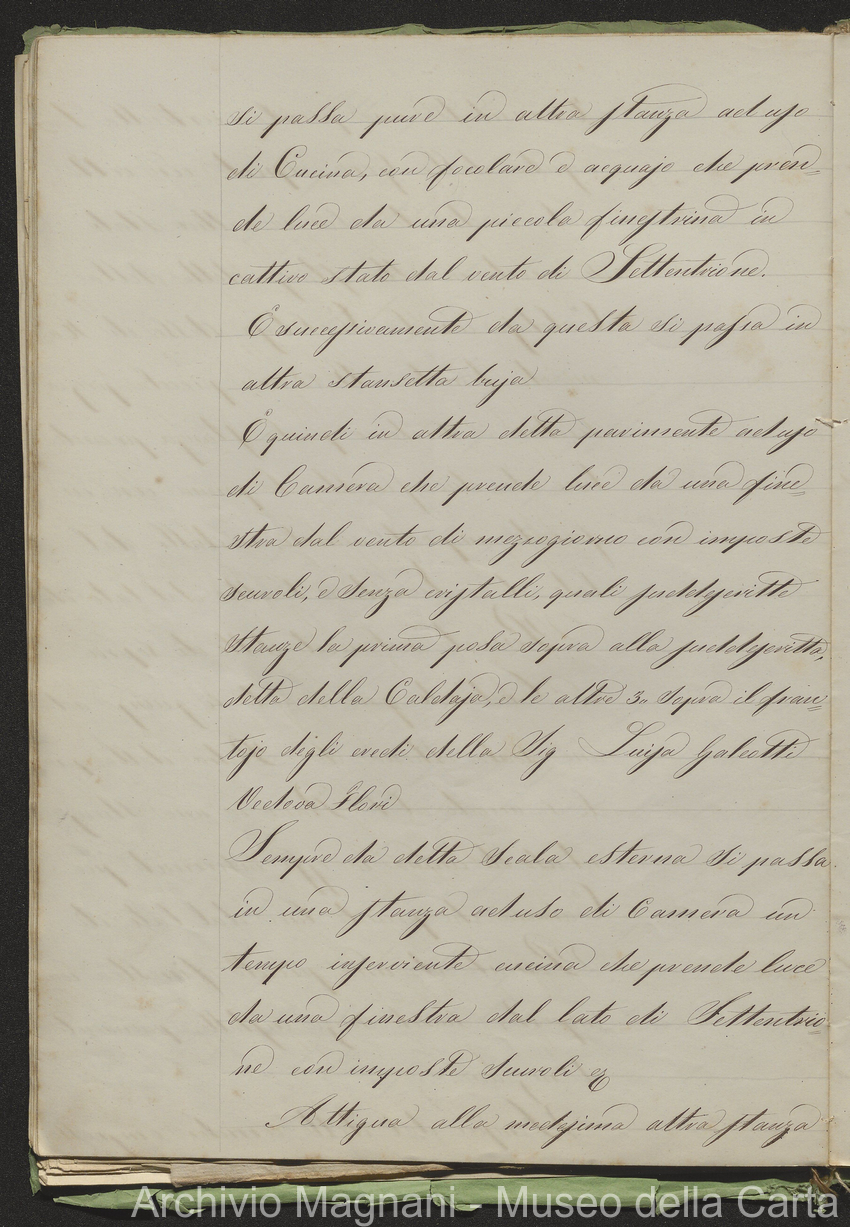 si passa pure in altra stanza ad uso
di Cucina, con focolare e acquajo che pren=
de luce da una piccola finestrina in
cattivo stato dal vento di Settentrione.
E successivamente da questa si passa in
altra stansetta buja
E quindi in altra detta parimente ad uso
di Camera che prende luce da una fine=
stra dal vento di mezzogiorno con imposte
scuroli, e senza cristalli, quali suddescritte
stanze la prima posa sopra alla suddescritta,
detta della Caldaja, e le altre 3. sopra il fran=
tojo degli eredi della Sig. Luisa Galeotti
Vedova Flori
Sempre da detta Scala esterna si passa
in una stanza ad uso di Camera un
tempo inserviente cucina che prende luce
da una finestra dal lato di Settentrio=
ne con imposte scuroli &
Attigua alla medesima altra stanza
Archivio Magnani - Museo della Carta